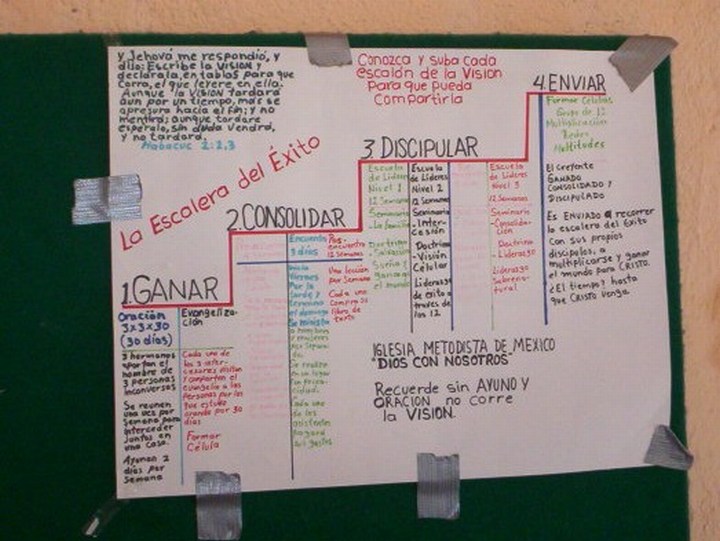 Y Jehová me respondió, y
dijo: Escribe la VISIÓN y
declárala, en tablas para que
corra, el que leyere en ella.
Aunque la VISIÓN tardará
aun por un tiempo, mas se
apresura hacia el fin; y no
mentirá; aunque tardare
espéralo, sin duda vendrá,
y no tardará.
Habacuc 2:2,3
Conozca y suba cada
escalón de la Visión
Para que pueda
Compartirla
La Escalera del Éxito
1.GANAR
Oración
3x3x30
(30 días)
3 hermanos
aportan el
nombre de
3 personas
inconversas
Se reunen
una vez por
Semana para
interceder
Juntos en
una casa.
Ayunan 2
días por
Semana
Evangeliza-
ción
Cada uno de
los 3 inter-
cesores visitan
y comparten el
evangelio a las
Personas por las
que estuvo
orando por 30
días
Formar
Célula
2.CONSOLIDAR
Encuentro
3 días
Inicia
Viernes
Por la
tarde y
termina
el domingo
Se ministra
a hombres
y mujeres
por separa-
do.
Se realiza
en un lugar
Cada uno
de los
asistentes
Pagará
sus gastos
Pos-
encuentro
12 Semanas
Una lección
por Semana
Cada uno
compra su
libro de
texto
3.DISCIPULAR
Escuela
de Líderes
Nivel 1
12 Semanas
Seminario
-La familia
Doctrina
-Salvación
Sueña y
ganarás el
mundo
Escuela
de Líderes
Nivel 2
12 Semanas
Seminario
-Inter-
cesión
Doctrina
-Visión
Célular
Liderazgo
de éxito a
través de
los 12
Escuela
de Líderes
Nivel 3
12 Semanas
Seminario
-Consolida-
ción
Doctrina
-Liderazgo
Liderazgo
Sobrena-
tural
4.ENVIAR
Formar Celulas
Grupo de 12
Multiplicación
Redes
Multitudes
El Creyente
GANADO
CONSOLIDADO Y
DISCIPULADO
Es ENVIADO a recorrer
la escalera del Éxito
Con sus propios
discípulos, a
multiplicarse y ganar
el mundo para CRISTO.
¿El tiempo? hasta
que CRISTO venga.
IGLESIA METODISTA DE MEXICO
"DIOS CON NOSOTROS"
Recuerde sin AYUNO Y
ORACION no corre
la VISION.